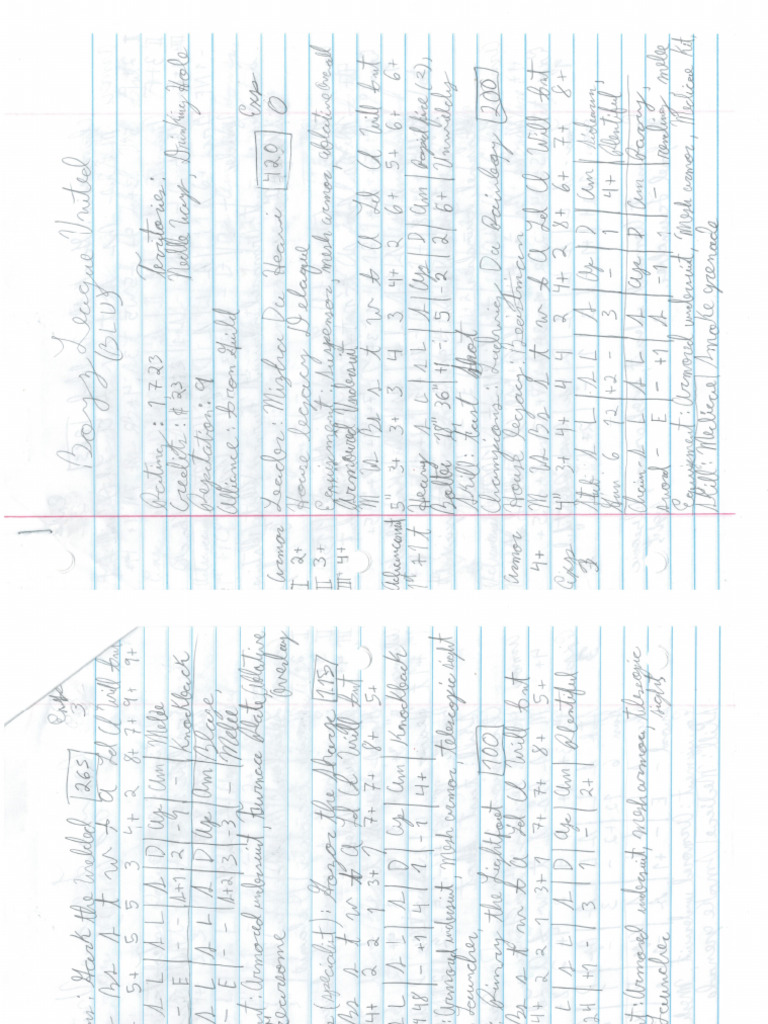 1
Boyz League United
(BLU)
Rating: 1723
Territories:
Credits: ¢23
Needle Ways, Drinking Hole
Reputation: 9
Alliance: Iron Guild
Exp
Armor Leader: Misha Du Heavi 420 0
I 2+ House legacy Delaque
II 3+ Equipment: Suspensor, mesh armor, ablative overall
III 4+ Armoured Undersuit
M W Bs S t w I A Ld Cl Will Int
5" 3+ 3+ 3 4 3 4+ 2 6+ 5+ 6+ 6+
1st +1 t
Heavy S L S L S Ap D Am Rapid fire (2),
Bolter 18" 36" +1 - 5 -2 2 6+ Unwieldy
Skill: fast shot
Champions: Ludwig Du 200
Armor House legacy:
4+ M W Bs S t w I A Ld Cl Will Int
4" 3+ 4+ 4 4 2 4+ 2 8+ 6+ 7+ 8+
Exp
3
Stub S L S L S Ap D Am Sidearm,
Gun 6 12 +2 - 3 - 1 4+ Plentiful
Chain- S L S L S Ap D Am Parry,
sword - E - +1 S -1 1 - rending, melee
Equipment: Armored undersuit, Mesh armor, Medicae Kit,
Skill: Medicae Smoke grenade
Exp
265 3
Bs S t w I A Ld Cl Will Int
5+ 5 5 3 4+ 2 8+ 7+ 9+ 9+
S L S L S D Ap Am Melee
- E - - S+1 2 -4 - Knockback
S L S L S D Ap Am Blaze,
- E - - S+2 3 -3 - Melee,
Armored undersuit, furnace plate, ablative
overlay
Fearsome
(specialist): the Shark 115
Bs S t w I A Ld Cl Will Int
4+ 2 2 1 3+ 1 7+ 7+ 8+ 5+
L S L S D Ap Am Knockback
48 - +1 4 1 -1 4+
: Armored undersuit, Mesh armor, telescopic sight
the Lightfoot 100
Bs S t w I A Ld Cl Will Int
4+ 2 2 1 3+ 1 7+ 7+ 8+ 5+
L S L S D Ap Am Plentiful
24 +1 - 3 1 - 2+
: Armored undersuit, mesh armor, telescopic
sight